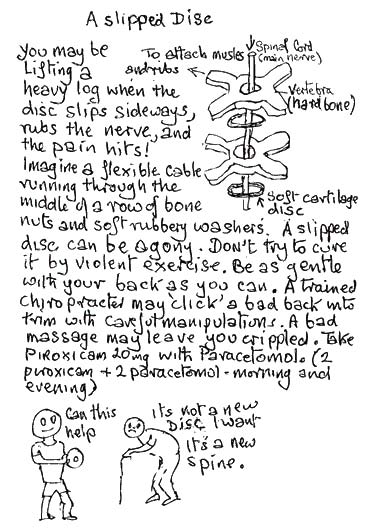 A slipped Disc
You may be
Lifting a
heavy log when the
disc slips sideways,
rubs the nerve, and
the pain hits!
Imagine a flexible cable
running through the
middle of a row of bone
nuts and soft rubbery washers. A slipped
disc can be agony. Don't try to cure
it by violent exercise. Be as gentle
with your back as you can. A trained
Chiropractor may 'click' a bad back into
trim with careful manipulations. A bad
massage may leave you crippled. Take
Piroxicam 20mg with Paracetomol. (2
piroxicam + 2 paracetomol - morning and
evening)
To attach musles
and ribs
Spinal Cord
(main nerve)
Vertebra
(hard bone)
Soft cartilage
disc
Can this
help
it's not a new
Disc I want
it's a new
spine.